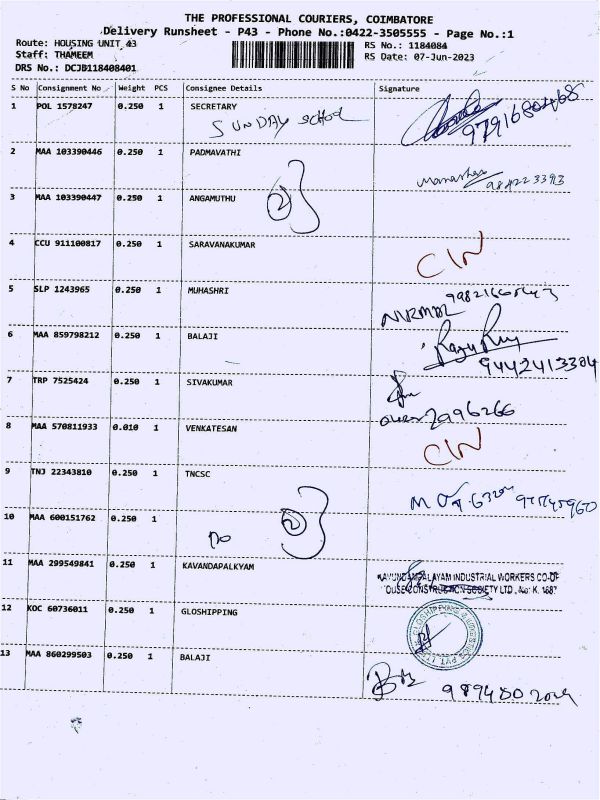 THE PROFESSIONAL COURIERS, COIMBATORE
Delivery Runsheet - P43 - Phone No.:0422-3505555 - Page No.:1
Route: HOUSING UNIT 43 RS No.: 1184084
Staff: THAMEEM RS Date: 07-Jun-2023
DRS No.: DCJB118408401
S No Consignment No Weight PCS Consignee Details Signature
1 POL 1578247 0.250 1 SECRETARY
SUNDAY SCHOOL 9791680468
2 MAA 103390446 0.250 1 PADMAVATHI
3 MAA 103390447 0.250 1 ANGAMUTHU
2
4 CCU 911100817 0.250 1 SARAVANAKUMAR
CIN
5 SLP 1243965 0.250 1 MUHASHRI
NIRMAL
6 MAA 859798212 0.250 1 BALAJI
9442413304
7 TRP 7525424 0.250 1 SIVAKUMAR
8 MAA 570811933 0.010 1 VENKATESAN
CIN
9 TNJ 22343810 0.250 1 TNCSC
10 MAA 600151762 0.250 1
DO 2
11 MAA 299549841 0.250 1 KAVANDAPALKYAM
INDUSTRIAL WORKERS CO-OP
CONSTRUCTION SOCIETY LTD., No: K. 1687
12 KOC 60736011 0.250 1 GLOSHIPPING
GLOSHIPPING & LOGISTICS PVT LTD
13 MAA 860299503 0.250 1 BALAJI